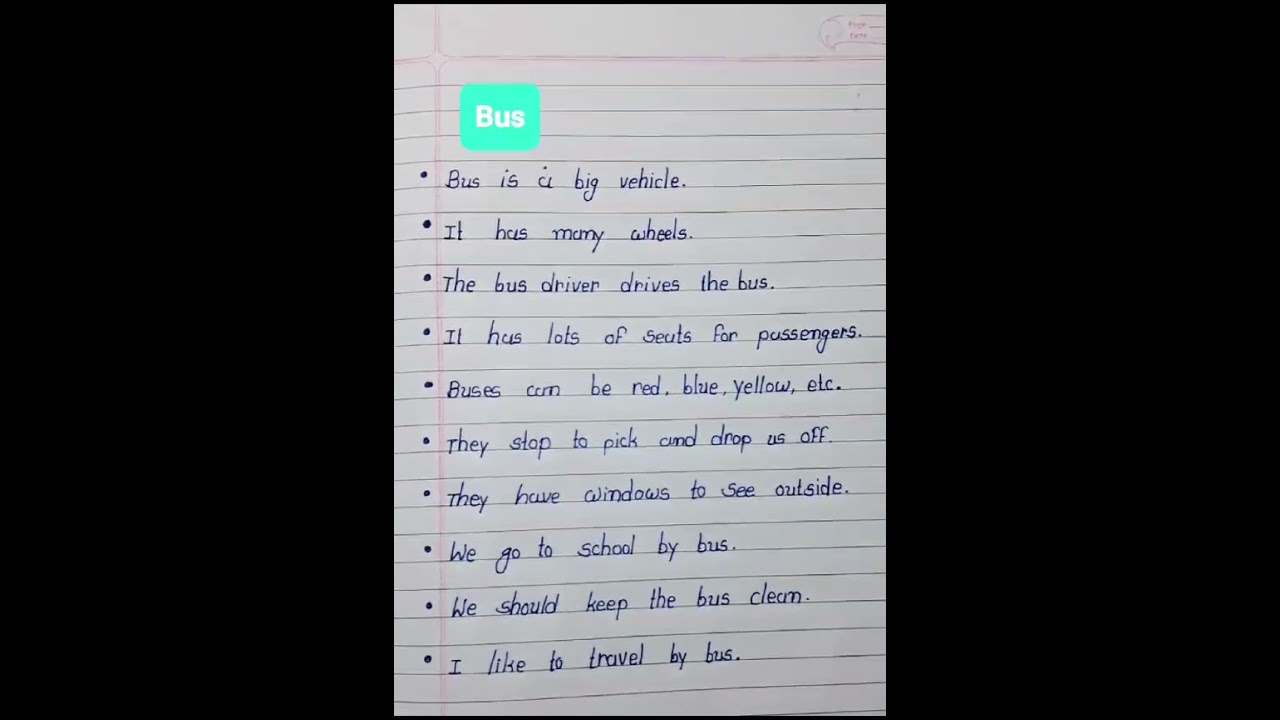 Page
Bus
• Bus is a big vehicle.
• It has many wheels.
• The bus driver drives the bus.
• It has lots of seats for passengers.
• Buses can be red, blue, yellow, etc.
• They stop to pick and drop us off.
• They have windows to see outside.
• We go to school by bus.
• We should keep the bus clean.
• I like to travel by bus.